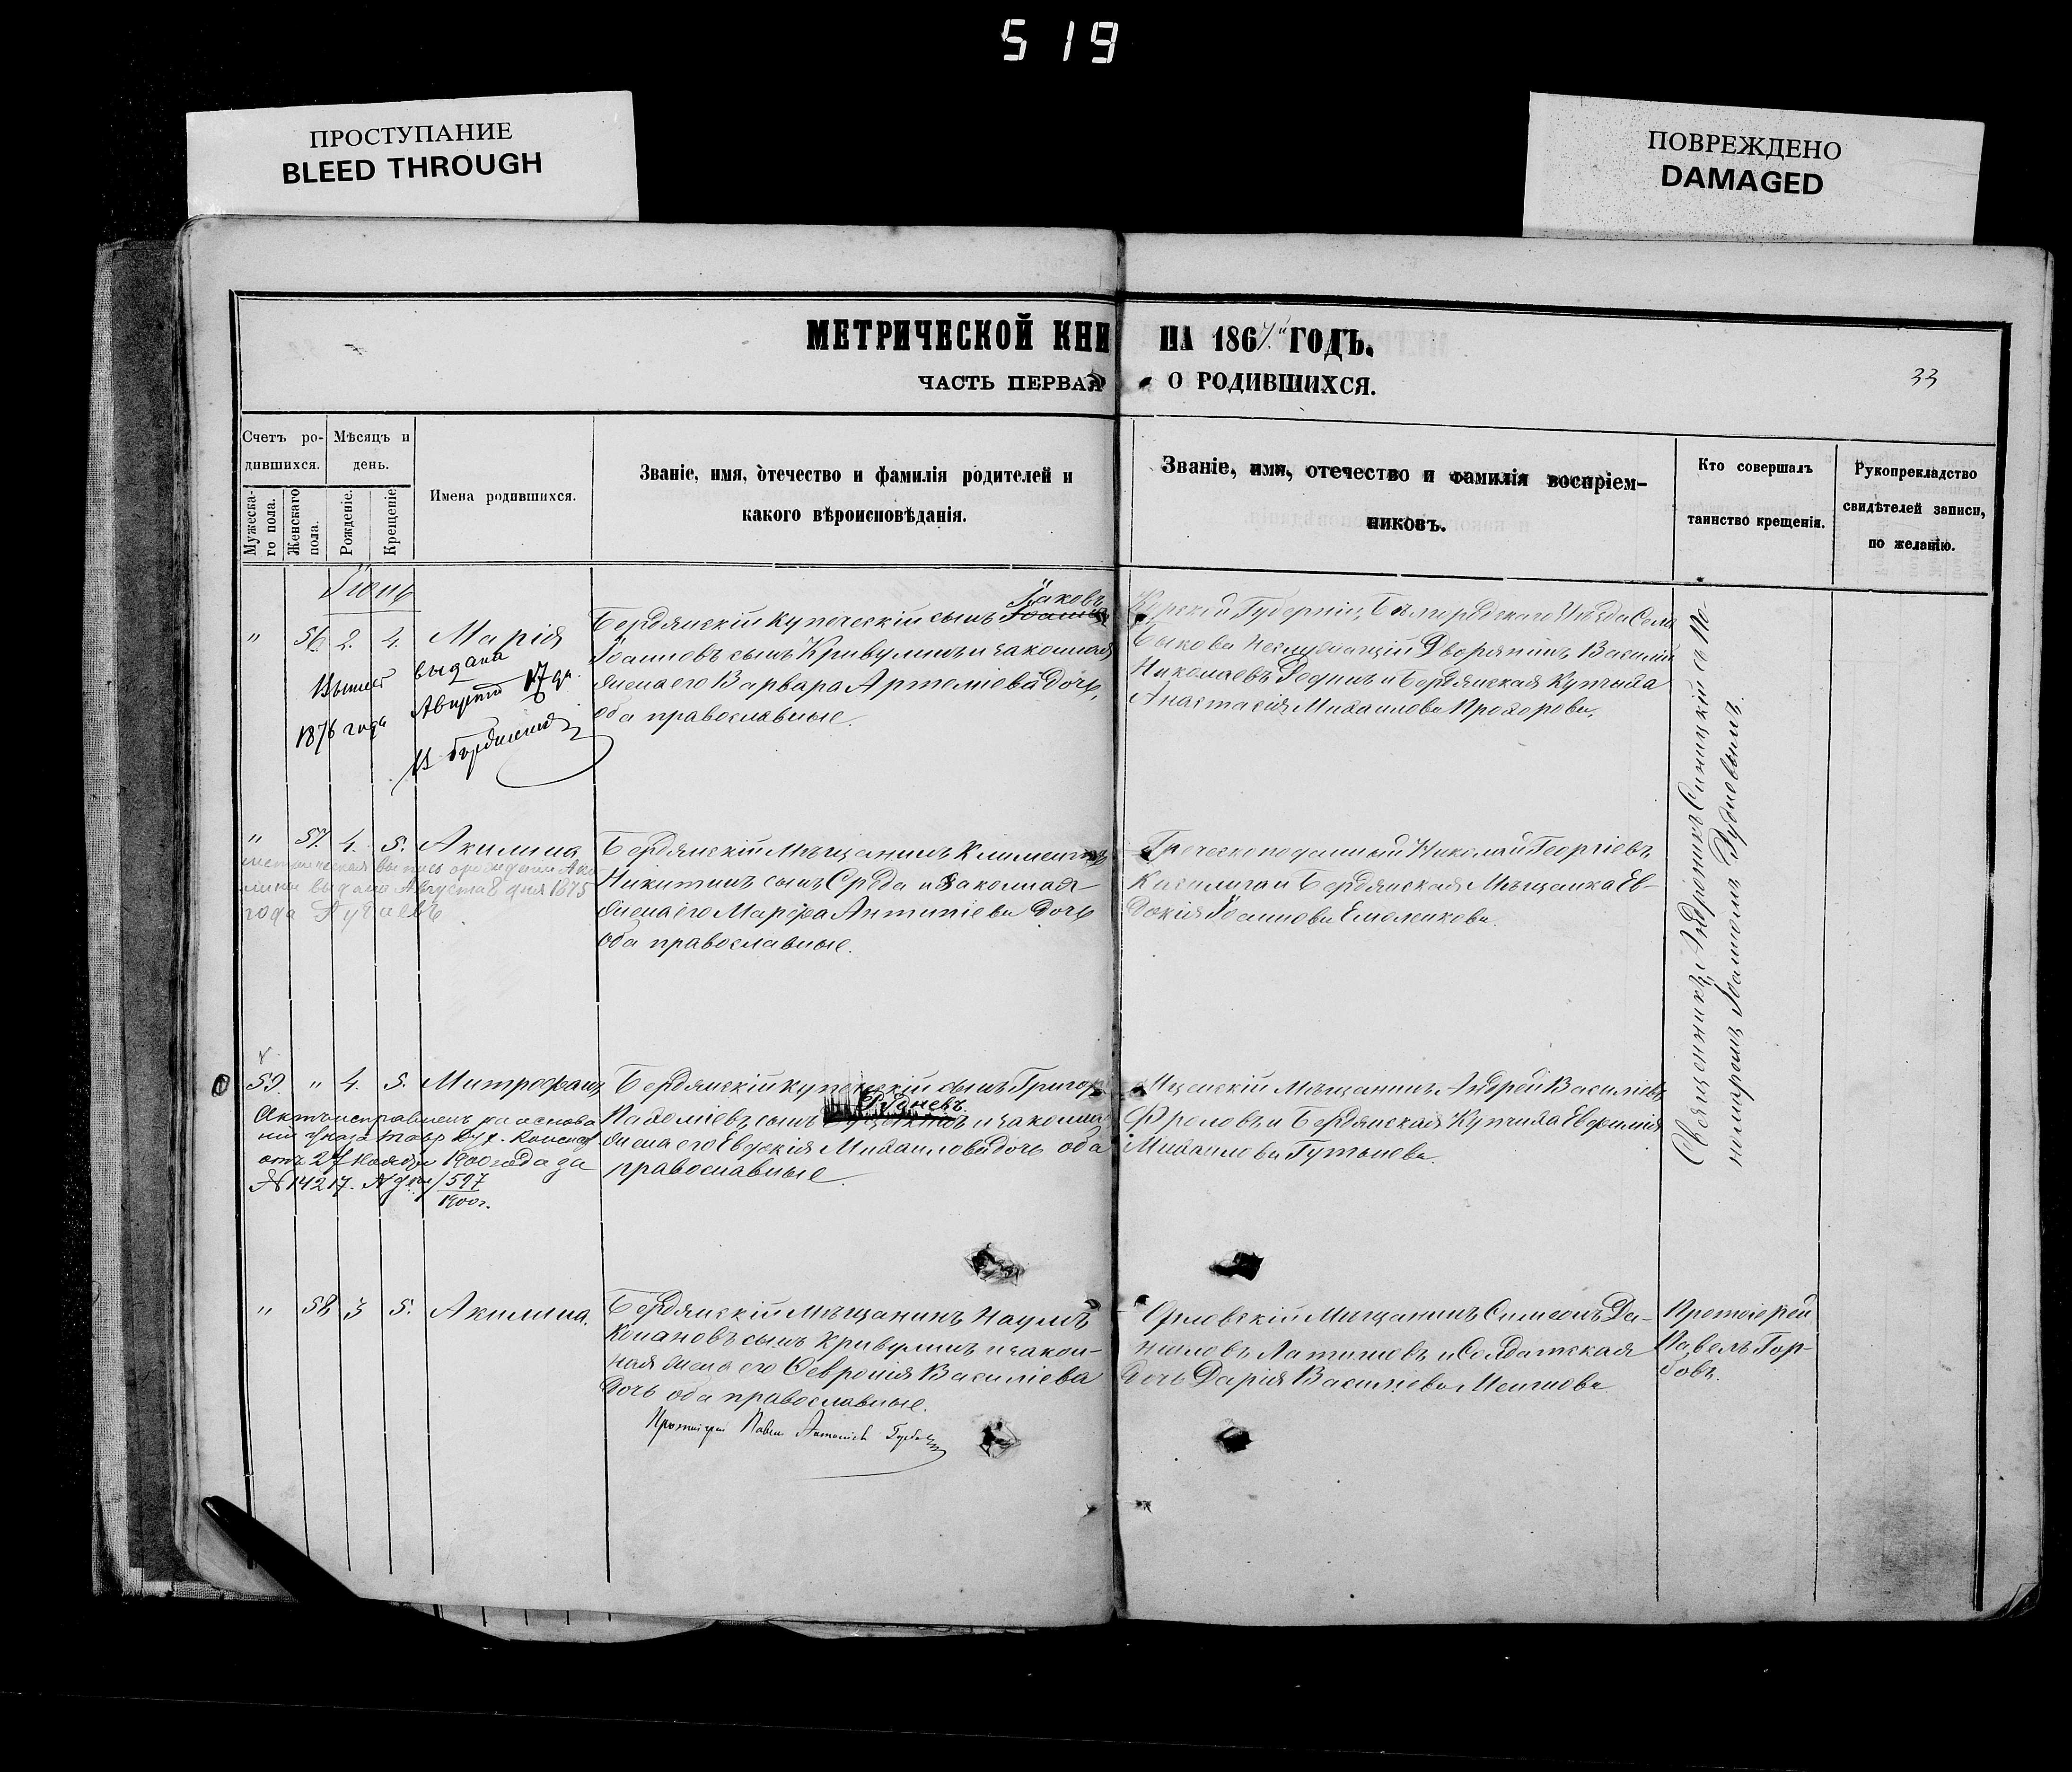 519
ПРОСТУПАНИЕ
BLEED THROUGH
ПОВРЕЖДЕНО
DAMAGED
МЕТРИЧЕСКОЙ КНИ НА 1867 ГОДЪ.
ЧАСТЬ ПЕРВАЯ О РОДИВШИХСЯ.
33
Счетъ ро-
дившихся.
Мѣсяцъ и
день.
Мужеска-
го пола.
Женскаго
пола.
Рожденіе.
Крещеніе
Имена родившихся.
Званіе, имя, отечество и фамилія родителей и
какого вѣроисповѣданія.
Званіе, имя, отечество и фамилія воспріем-
никовъ.
Кто совершалъ
таинство крещенія.
Рукоприкладство
свидѣтелей записи,
по желанію.
Іюнь
" 56 2. 4. Марія
выдана
Августа 17 дн.
1876 года
Іаковъ
Бердянскій купеческій сынъ
Іоанновъ сынъ Кривулинъ и законная
жена его Варвара Артеміева дочь,
оба православные.
Курской Губерніи, Бѣлгородскаго Уѣзда Села
Быкова Неслужащій Дворянинъ Василій
Николаевъ и Бердянская Купчиха
Анастасія Михаилова Прохорова.
Священникъ Андроникъ Синицкій съ По-
номаремъ Іоанномъ Рудновымъ.
" 57. 4. 5. Акилина
выпись о рожденіи Аки
лины выдана Августа 8 дня 1875
года
Бердянскій Мѣщанинъ Климентъ
Никитинъ сынъ Среда и Законная
жена его Марѳа Антипіева дочь
оба православные.
Греческоподанный Николай Георгіевъ
и Бердянская Мѣщанка Ев-
докія Іоаннова Емоленкова.
59 " 4. 5. Митрофанъ
Актъ исправленъ на основа
ніи Указа Тавр. Дух. Консист
отъ 24 Ноября 1900 года за
№ 14217. 597
1900г.
Бердянскій купеческій сынъ Григор
Рудневъ.
Пахоміевъ сынъ и законн
жена его Евдокія Михаиловна дочь оба
православные
Мценскій Мѣщанинъ Андрей Василіевъ
Фроловъ и Бердянская Купчиха Евфимія
Михаилова Гутьнева.
" 58 3 5. Акилина.
Бердянскій Мѣщанинъ Наумъ
Конановъ сынъ Кривулинъ и закон-
ная жена его Ѳевронія Василіева
дочь оба православные.
Протоіерей Павелъ Горбовъ
Орловскій Мѣщанинъ Симеонъ Да-
ниловъ и Солдатская
дочь Дарія Василіева
Протоіерей
Павелъ Гор-
бовъ.